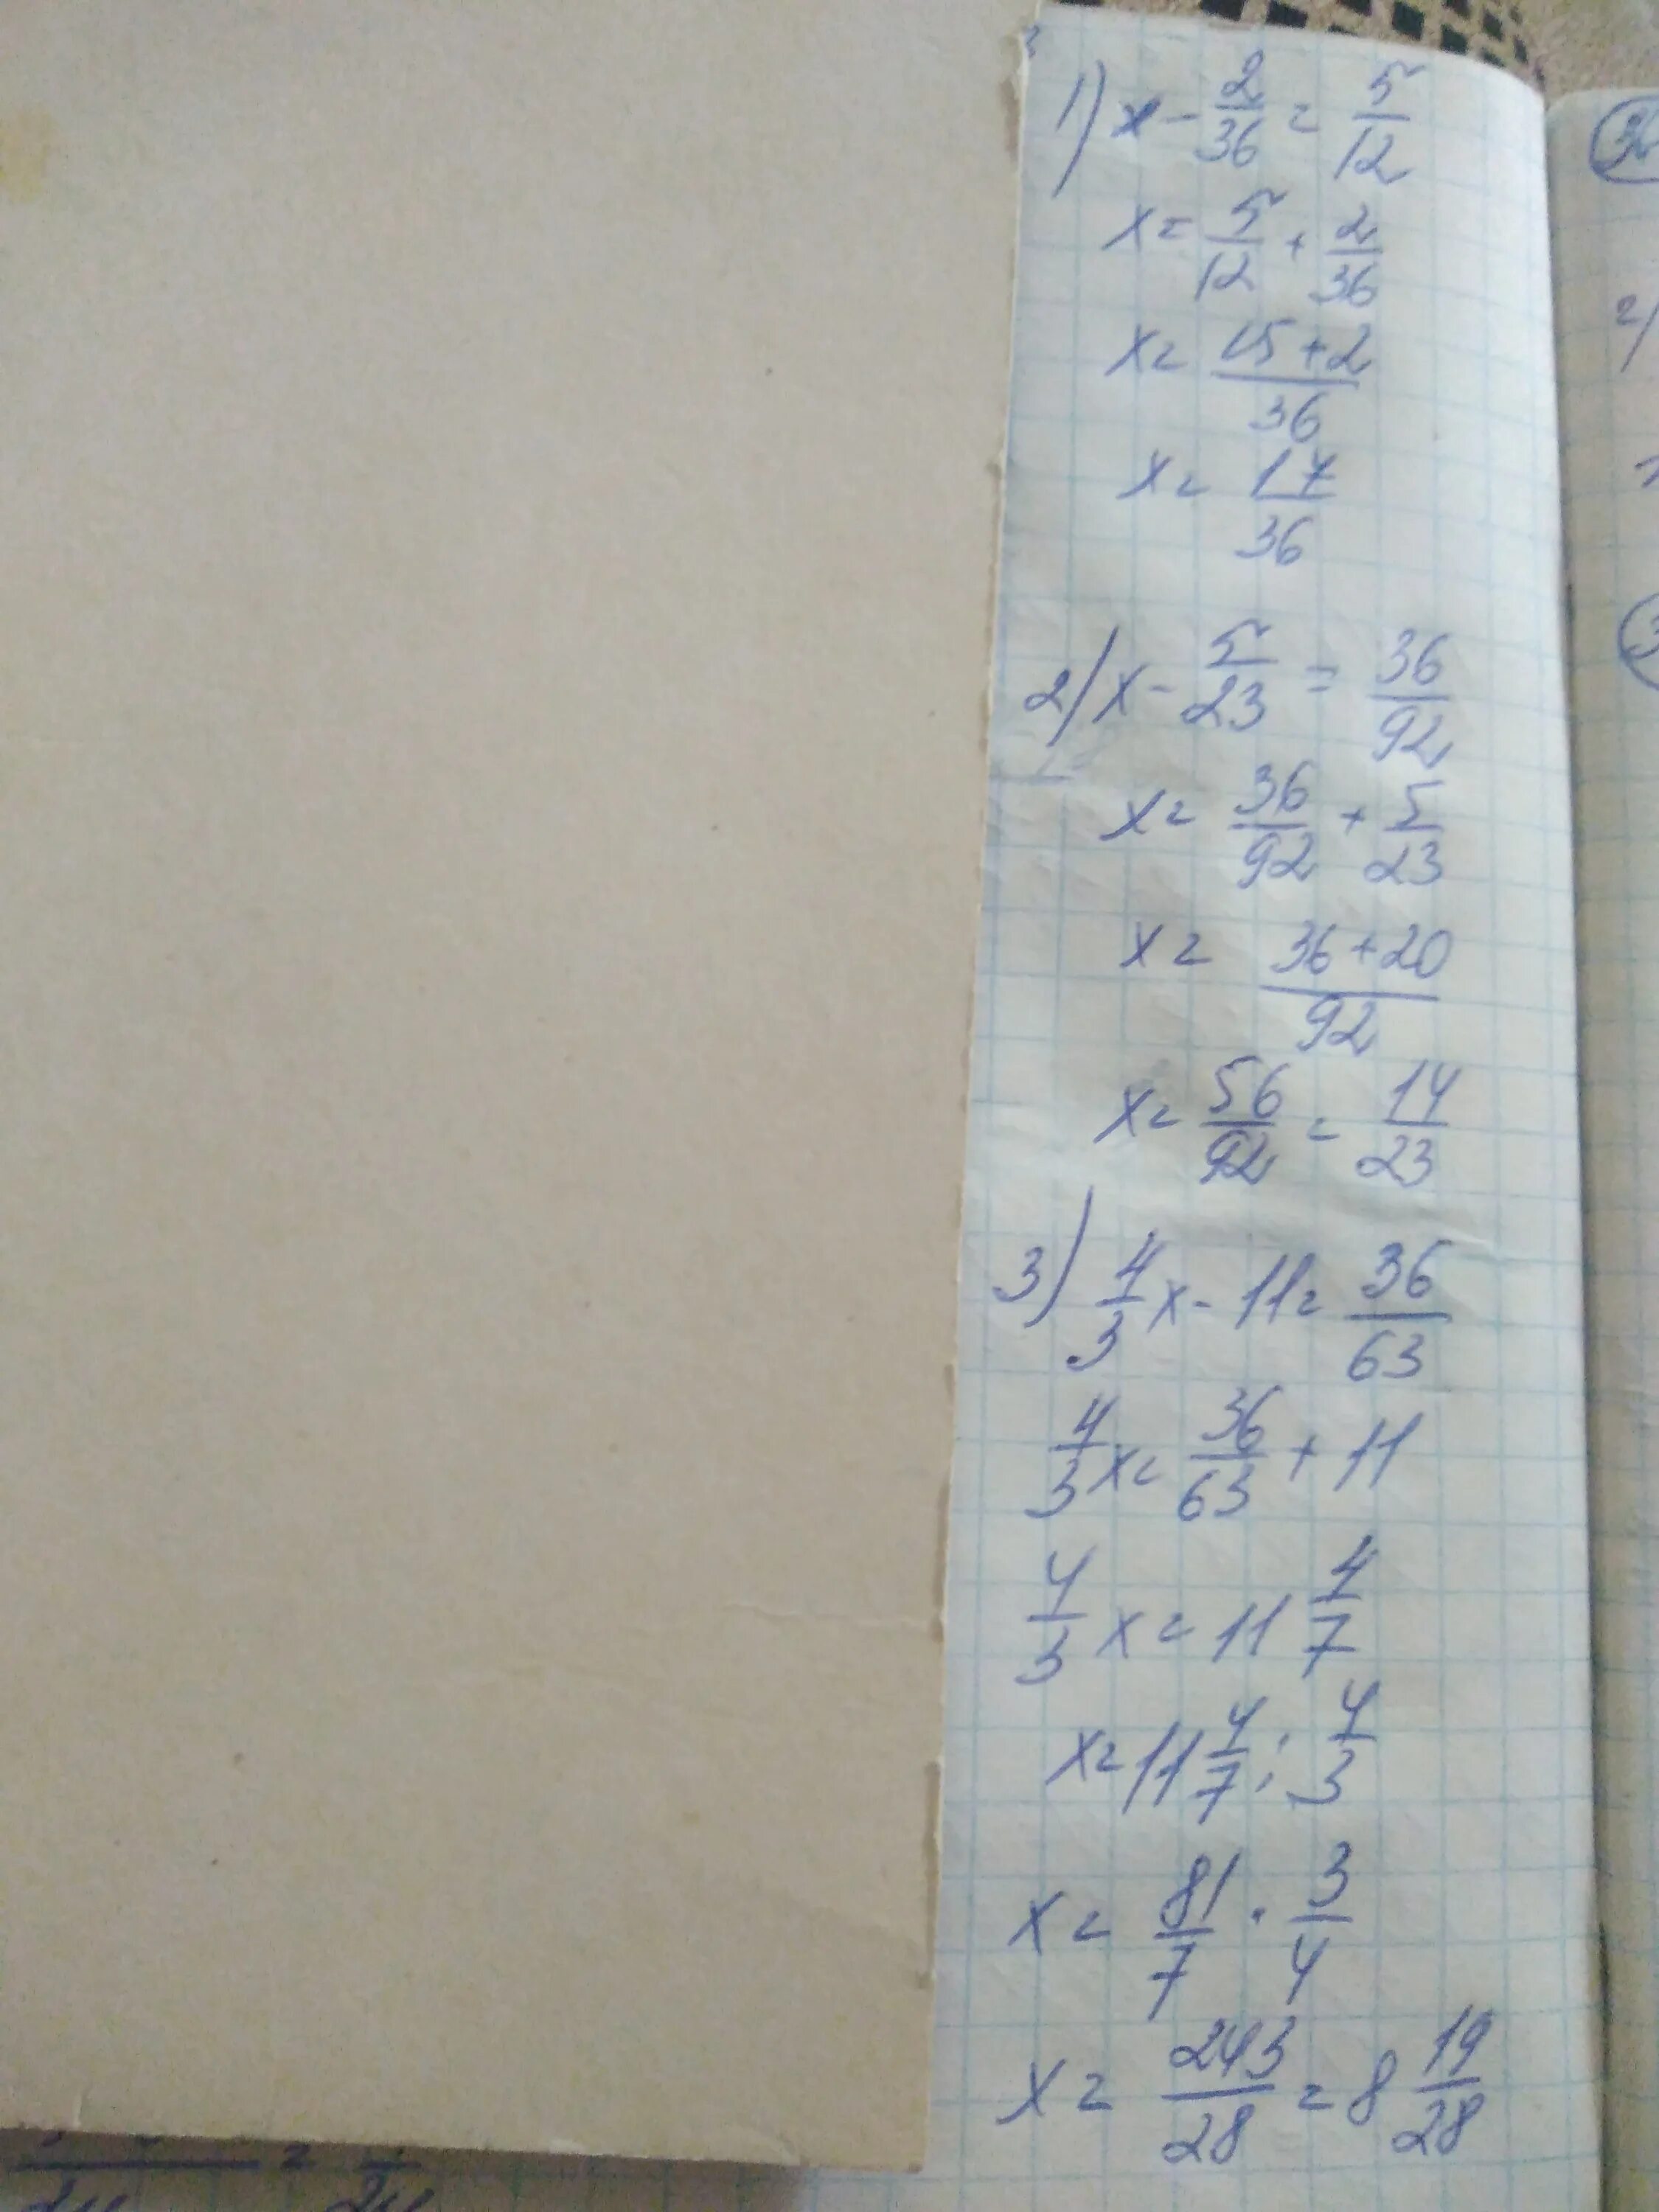 1) x - 2/36 = 5/12
x = 5/12 + 2/36
x = (15+2)/36
x = 17/36
2) x - 5/23 = 36/92
x = 36/92 + 5/23
x = (36+20)/92
x = 56/92 = 14/23
3) 4/3 x - 11 = 36/63
4/3 x = 36/63 + 11
4/3 x = 11 4/7
x = 11 4/7 : 4/3
x = 81/7 · 3/4
x = 243/28 = 8 19/28